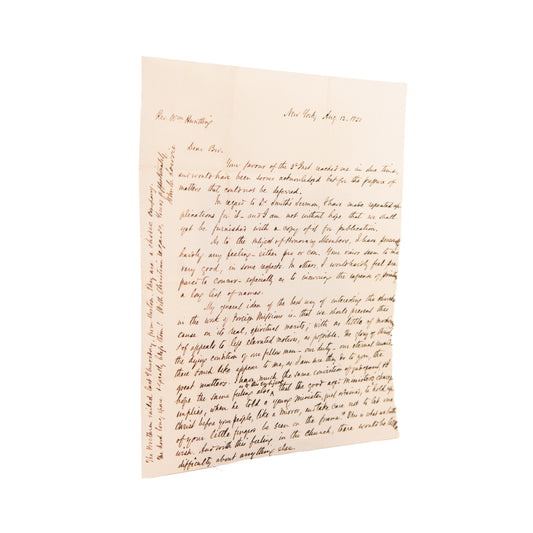 New York, Aug. 12. 18
Rev. Wm
Dear Bro.
Your favour of the 2d Inst. reached me in due time,
and would have been sooner acknowledged but for the pressure of
matters that could not be deferred.
In regard to Dr. Smith's Sermon, I have made repeated
for it - and I am not without hope that we shall
yet be furnished with a copy of it for publication.
As to the subject of Honorary Members, I have
hardly any feeling - either pro or con. Your views seem to me
very good, in some respects. In others, I would hardly feel pre
pared to concur - especially as to incurring the expense of printing
a long list of names.
My grand idea of the best way of interesting the churches
in the work of Foreign Missions is - that we should present this
cause on its real, spiritual merits, with as little of
of appeals to less elevated motives, as possible. The glory of Christ,
the dying condition of our fellow men - our duty - our eternal
these
great matters. I have much the same conviction of
hope the same feeling also that the good
implies, when he told a young minister, just ordained, to hold up
Christ before your people, like a mirror, but take care not to let one
of your little fingers be seen on the frame!
wish. And with this feeling in the church, there would be little
difficulty about anything else.
The Brethren sailed last Thursday, from Boston. They are a choice company.
The Lord long spare & greatly bless them! With Christian regards,